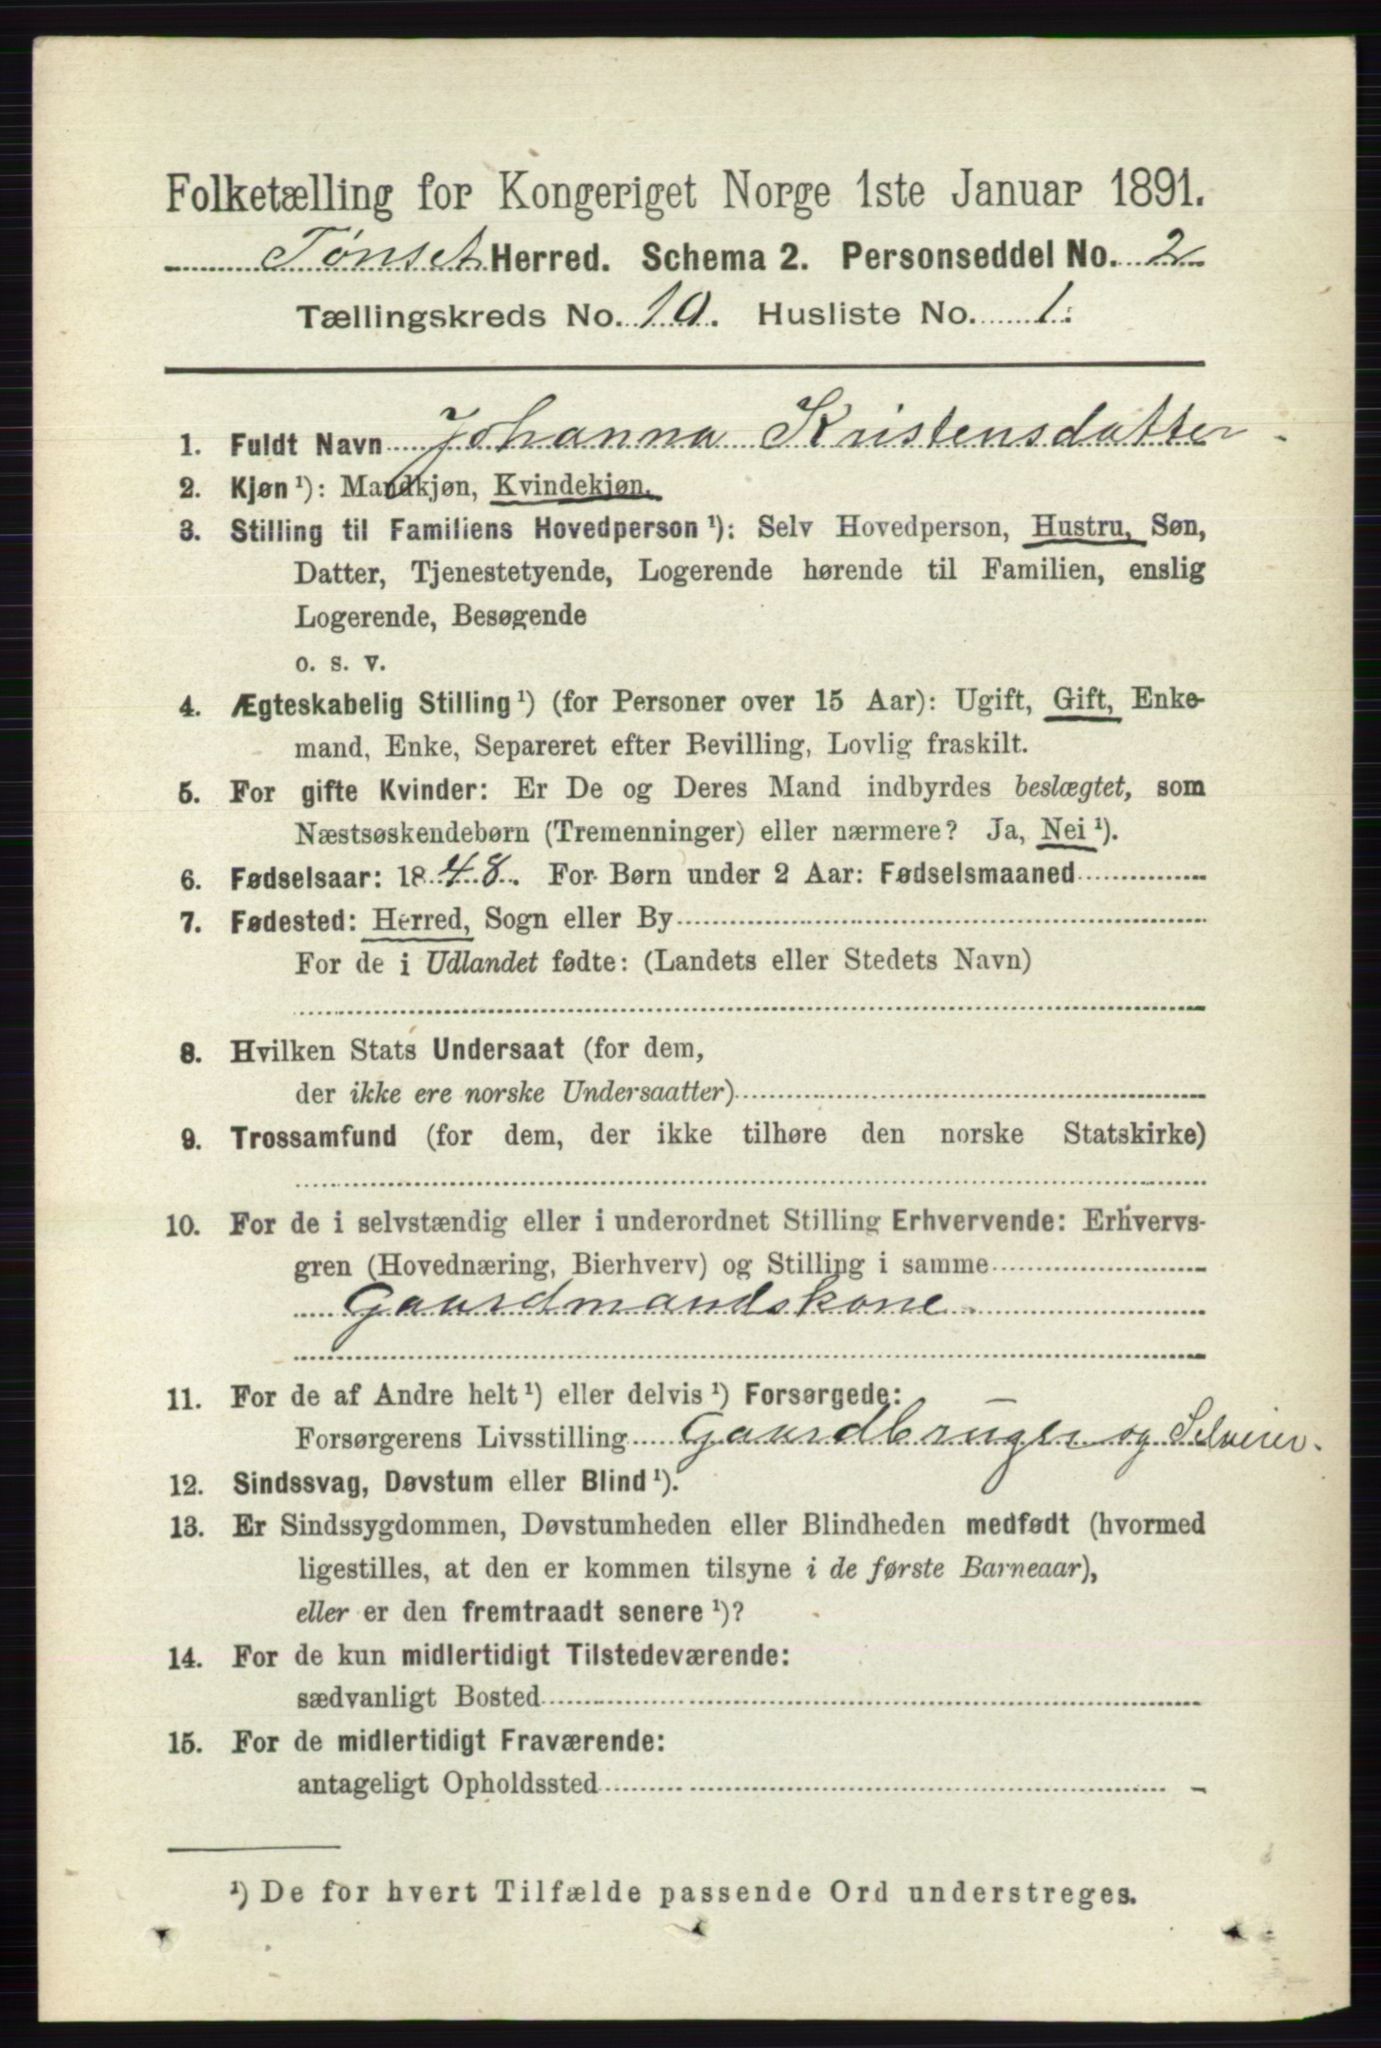 Folketælling for Kongeriget Norge 1ste Januar 1891.
Tønset Herred. Schema 2. Personseddel No. 2
Tællingskreds No. 10. Husliste No. 1.
1. Fuldt Navn Johanna Kristensdatter
2. Kjøn ¹): Mandkjøn, Kvindekjøn.
3. Stilling til Familiens Hovedperson ¹): Selv Hovedperson, Hustru, Søn,
Datter, Tjenestetyende, Logerende hørende til Familien, enslig
Logerende, Besøgende
o. s. v.
4. Ægteskabelig Stilling ¹) (for Personer over 15 Aar): Ugift, Gift, Enke-
mand, Enke, Separeret efter Bevilling, Lovlig fraskilt.
5. For gifte Kvinder: Er De og Deres Mand indbyrdes beslægtet, som
Næstsøskendebørn (Tremenninger) eller nærmere? Ja, Nei ¹).
6. Fødselsaar: 1848. For Børn under 2 Aar: Fødselsmaaned
7. Fødested: Herred, Sogn eller By
For de i Udlandet fødte: (Landets eller Stedets Navn)
8. Hvilken Stats Undersaat (for dem,
der ikke ere norske Undersaatter)
9. Trossamfund (for dem, der ikke tilhøre den norske Statskirke)
10. For de i selvstændig eller i underordnet Stilling Erhvervende: Erhvervs-
gren (Hovednæring, Bierhverv) og Stilling i samme
Gaardmandskone.
11. For de af Andre helt ¹) eller delvis ¹) Forsørgede:
Forsørgerens Livsstilling Gaardbruger og Selveier.
12. Sindssvag, Døvstum eller Blind ¹).
13. Er Sindssygdommen, Døvstumheden eller Blindheden medfødt (hvormed
ligestilles, at den er kommen tilsyne i de første Barneaar),
eller er den fremtraadt senere ¹)?
14. For de kun midlertidigt Tilstedeværende:
sædvanligt Bosted
15. For de midlertidigt Fraværende:
antageligt Opholdssted
¹) De for hvert Tilfælde passende Ord understreges.